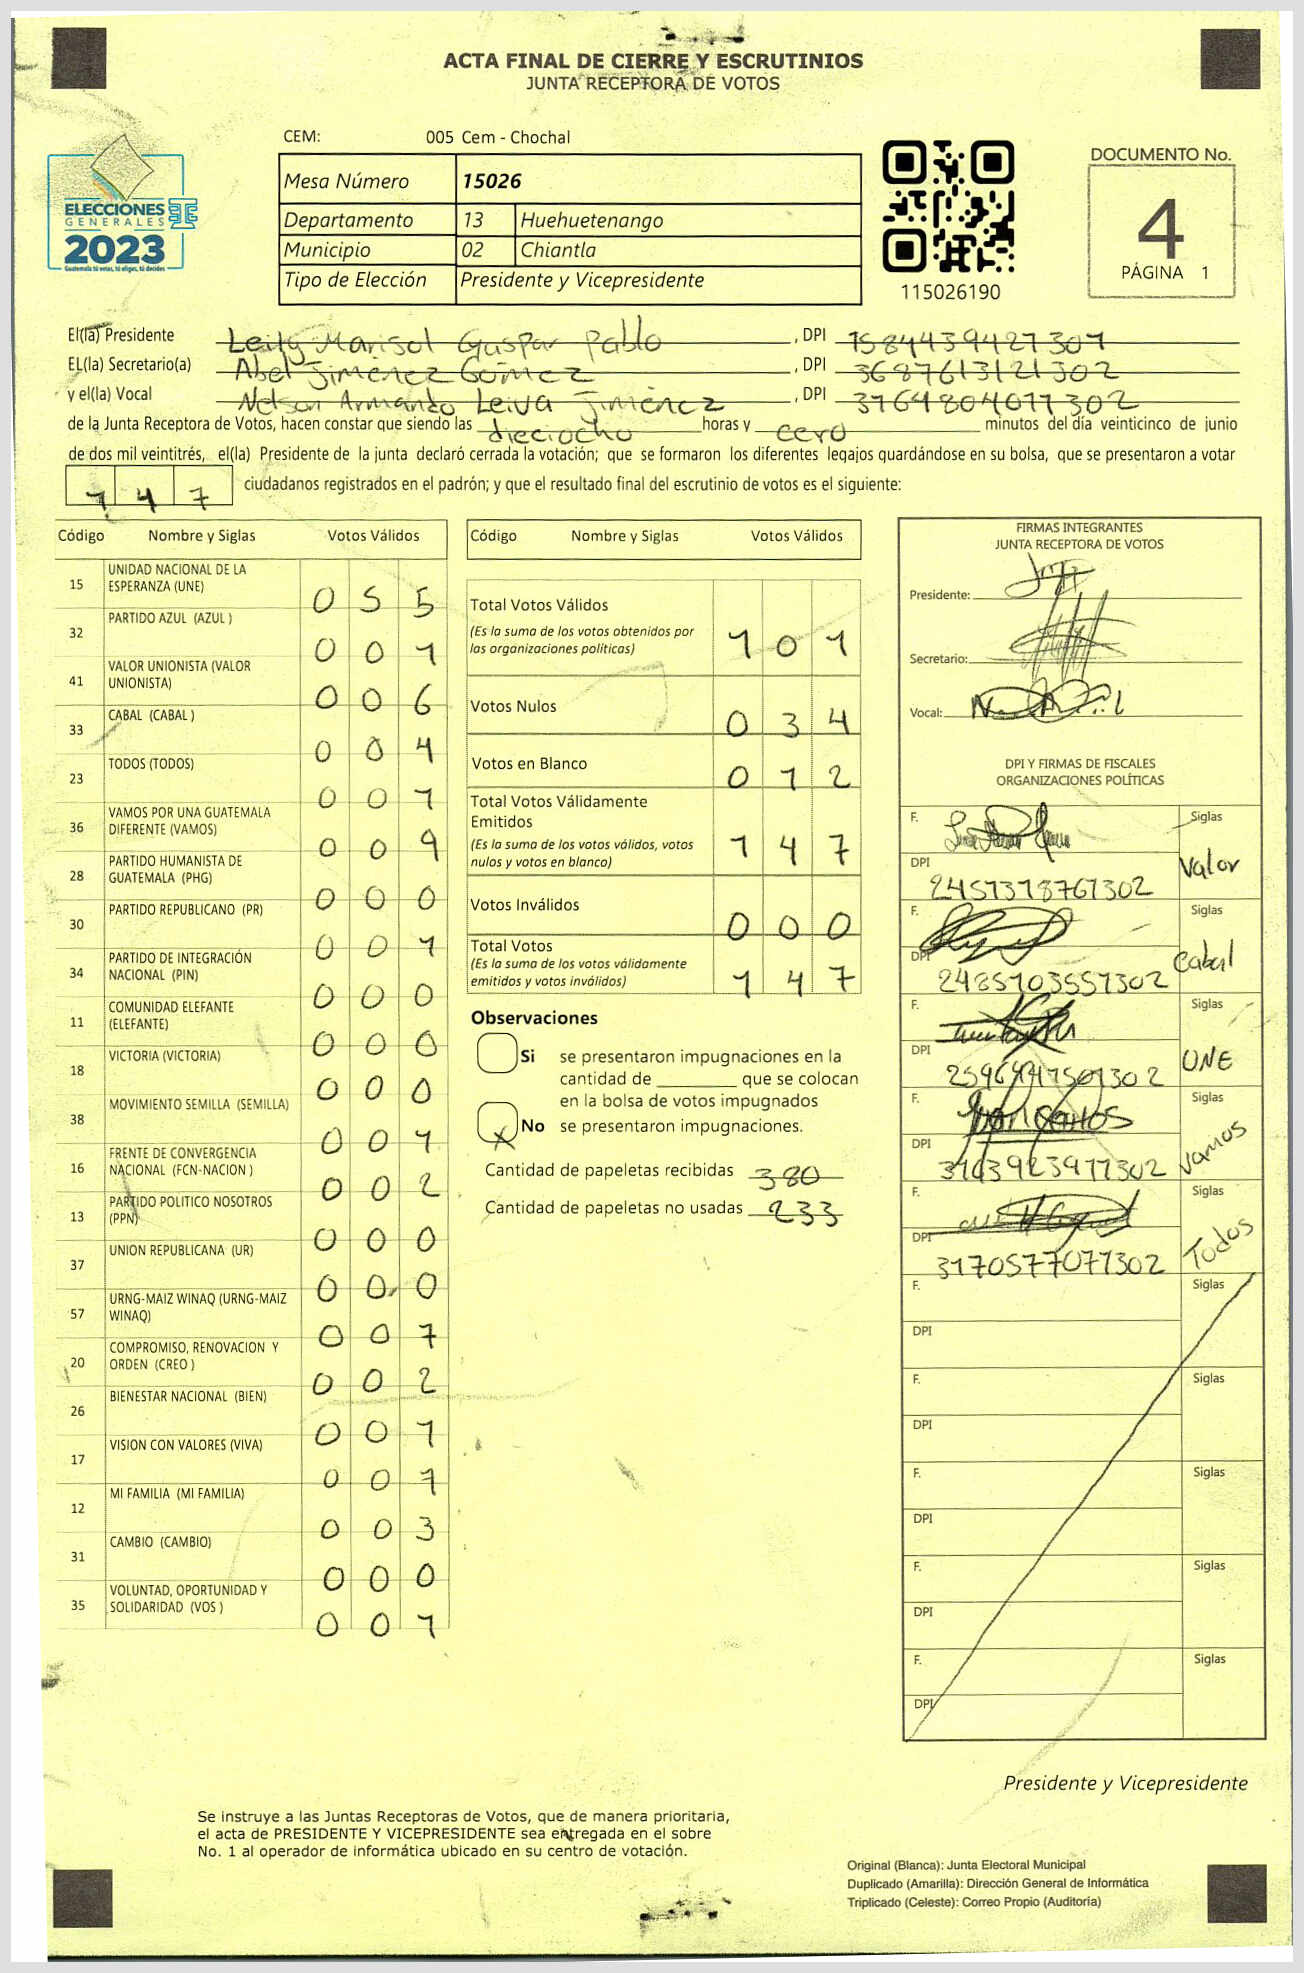 ACTA FINAL DE CIERRE Y ESCRUTINIOS
JUNTA RECEPTORA DE VOTOS
CEM: 005 Cem - Chochal
ELECCIONES
GENERALES
2023
Guatemala tú votas, tú eliges, tú decides
Mesa Número 15026
Departamento 13 Huehuetenango
Municipio 02 Chiantla
Tipo de Elección Presidente y Vicepresidente
115026190
DOCUMENTO No.
4
PÁGINA 1
El(la) Presidente Leily Marisol Gaspar Pablo, DPI 1584439427307
EL(la) Secretario(a) Abel Jiménez Gómez, DPI 3687613121302
y el(la) Vocal Nelson Armando Leiva Jiménez, DPI 3764804077302
de la Junta Receptora de Votos, hacen constar que siendo las dieciocho horas y cero minutos del día veinticinco de junio
de dos mil veintitrés, el(la) Presidente de la junta declaró cerrada la votación; que se formaron los diferentes legajos guardándose en su bolsa, que se presentaron a votar
147 ciudadanos registrados en el padrón; y que el resultado final del escrutinio de votos es el siguiente:
Código Nombre y Siglas Votos Válidos
15 UNIDAD NACIONAL DE LA ESPERANZA (UNE) 0 5 5
32 PARTIDO AZUL (AZUL ) 0 0 1
41 VALOR UNIONISTA (VALOR UNIONISTA) 0 0 6
33 CABAL (CABAL ) 0 0 4
23 TODOS (TODOS) 0 0 1
36 VAMOS POR UNA GUATEMALA DIFERENTE (VAMOS) 0 0 9
28 PARTIDO HUMANISTA DE GUATEMALA (PHG) 0 0 0
30 PARTIDO REPUBLICANO (PR) 0 0 1
34 PARTIDO DE INTEGRACIÓN NACIONAL (PIN) 0 0 0
11 COMUNIDAD ELEFANTE (ELEFANTE) 0 0 0
18 VICTORIA (VICTORIA) 0 0 0
38 MOVIMIENTO SEMILLA (SEMILLA) 0 0 1
16 FRENTE DE CONVERGENCIA NACIONAL (FCN-NACION ) 0 0 2
13 PARTIDO POLITICO NOSOTROS (PPN) 0 0 0
37 UNION REPUBLICANA (UR) 0 0 0
57 URNG-MAIZ WINAQ (URNG-MAIZ WINAQ) 0 0 7
20 COMPROMISO, RENOVACION Y ORDEN (CREO ) 0 0 2
26 BIENESTAR NACIONAL (BIEN) 0 0 1
17 VISION CON VALORES (VIVA) 0 0 1
12 MI FAMILIA (MI FAMILIA) 0 0 3
31 CAMBIO (CAMBIO) 0 0 0
35 VOLUNTAD, OPORTUNIDAD Y SOLIDARIDAD (VOS ) 0 0 1
Código Nombre y Siglas Votos Válidos
Total Votos Válidos 1 0 1
(Es la suma de los votos obtenidos por
las organizaciones políticas)
Votos Nulos 0 3 4
Votos en Blanco 0 1 2
Total Votos Válidamente
Emitidos 1 4 7
(Es la suma de los votos válidos, votos
nulos y votos en blanco)
Votos Inválidos 0 0 0
Total Votos 1 4 7
(Es la suma de los votos válidamente
emitidos y votos inválidos)
Observaciones
Si se presentaron impugnaciones en la
cantidad de ________ que se colocan
en la bolsa de votos impugnados
X No se presentaron impugnaciones.
Cantidad de papeletas recibidas 380
Cantidad de papeletas no usadas 233
FIRMAS INTEGRANTES
JUNTA RECEPTORA DE VOTOS
Presidente:
Secretario:
Vocal:
DPI Y FIRMAS DE FISCALES
ORGANIZACIONES POLÍTICAS
F. Siglas
DPI 2457378767302 Valor
F. Siglas
DPI 2485703557302 Cabal
F. Siglas
DPI UNE
F. Siglas
DPI Vamos
F. Siglas
DPI 3170577071302 Todos
F. Siglas
DPI
F. Siglas
DPI
F. Siglas
DPI
F. Siglas
DPI
F. Siglas
DPI
Presidente y Vicepresidente
Se instruye a las Juntas Receptoras de Votos, que de manera prioritaria,
el acta de PRESIDENTE Y VICEPRESIDENTE sea entregada en el sobre
No. 1 al operador de informática ubicado en su centro de votación.
Original (Blanca): Junta Electoral Municipal
Duplicado (Amarilla): Dirección General de Informática
Triplicado (Celeste): Correo Propio (Auditoría)